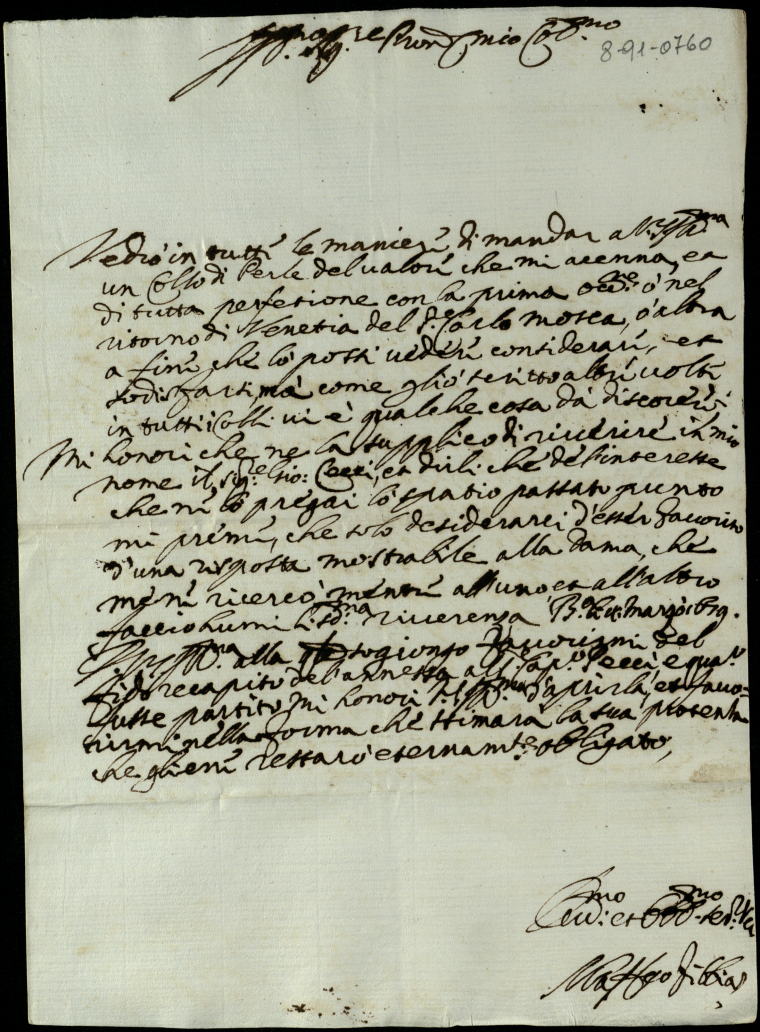 Ill.mo Sig.re e Pron mio Col.mo
8-91-0760
Vedrò in tutte le maniere di mandar a V.S. Ill.ma
un Collo di Perle del valore che mi acenna, et
di tutta perfetione con la prima occ.ne ò nel
ritorno di Venetia del S.r Carlo Mosca, ò altra
a fine che lo possi vedere considerare, et
sodisfarsi ma come gliò scritto altre volte
in tutti i Colli vi è qualche cosa da discorere
Mi honori che ne la supplico di riverire in mio
nome il sig.re Gio: Cecci, et dirli che del interesse
che ne lo pregai lo spatio passato punto
mi preme, che solo desiderarei d'esser favorito
d'una risposta mostrabile alla Dama, che
me ne ricercò mentre all'uno et all'altro
faccio humi riverenza Marzo
Ill.ma alla sogiongo favorirmi del
fido recapito del annessa al Cap.o Cecci, e qua
fusse partito, mi honori d'aprirla, et favo=
rirmi nella forma che stimarà la sua
che gliene restarò eternam.te obligato,
Dev.mo et Obb.mo ser.re
Matteo